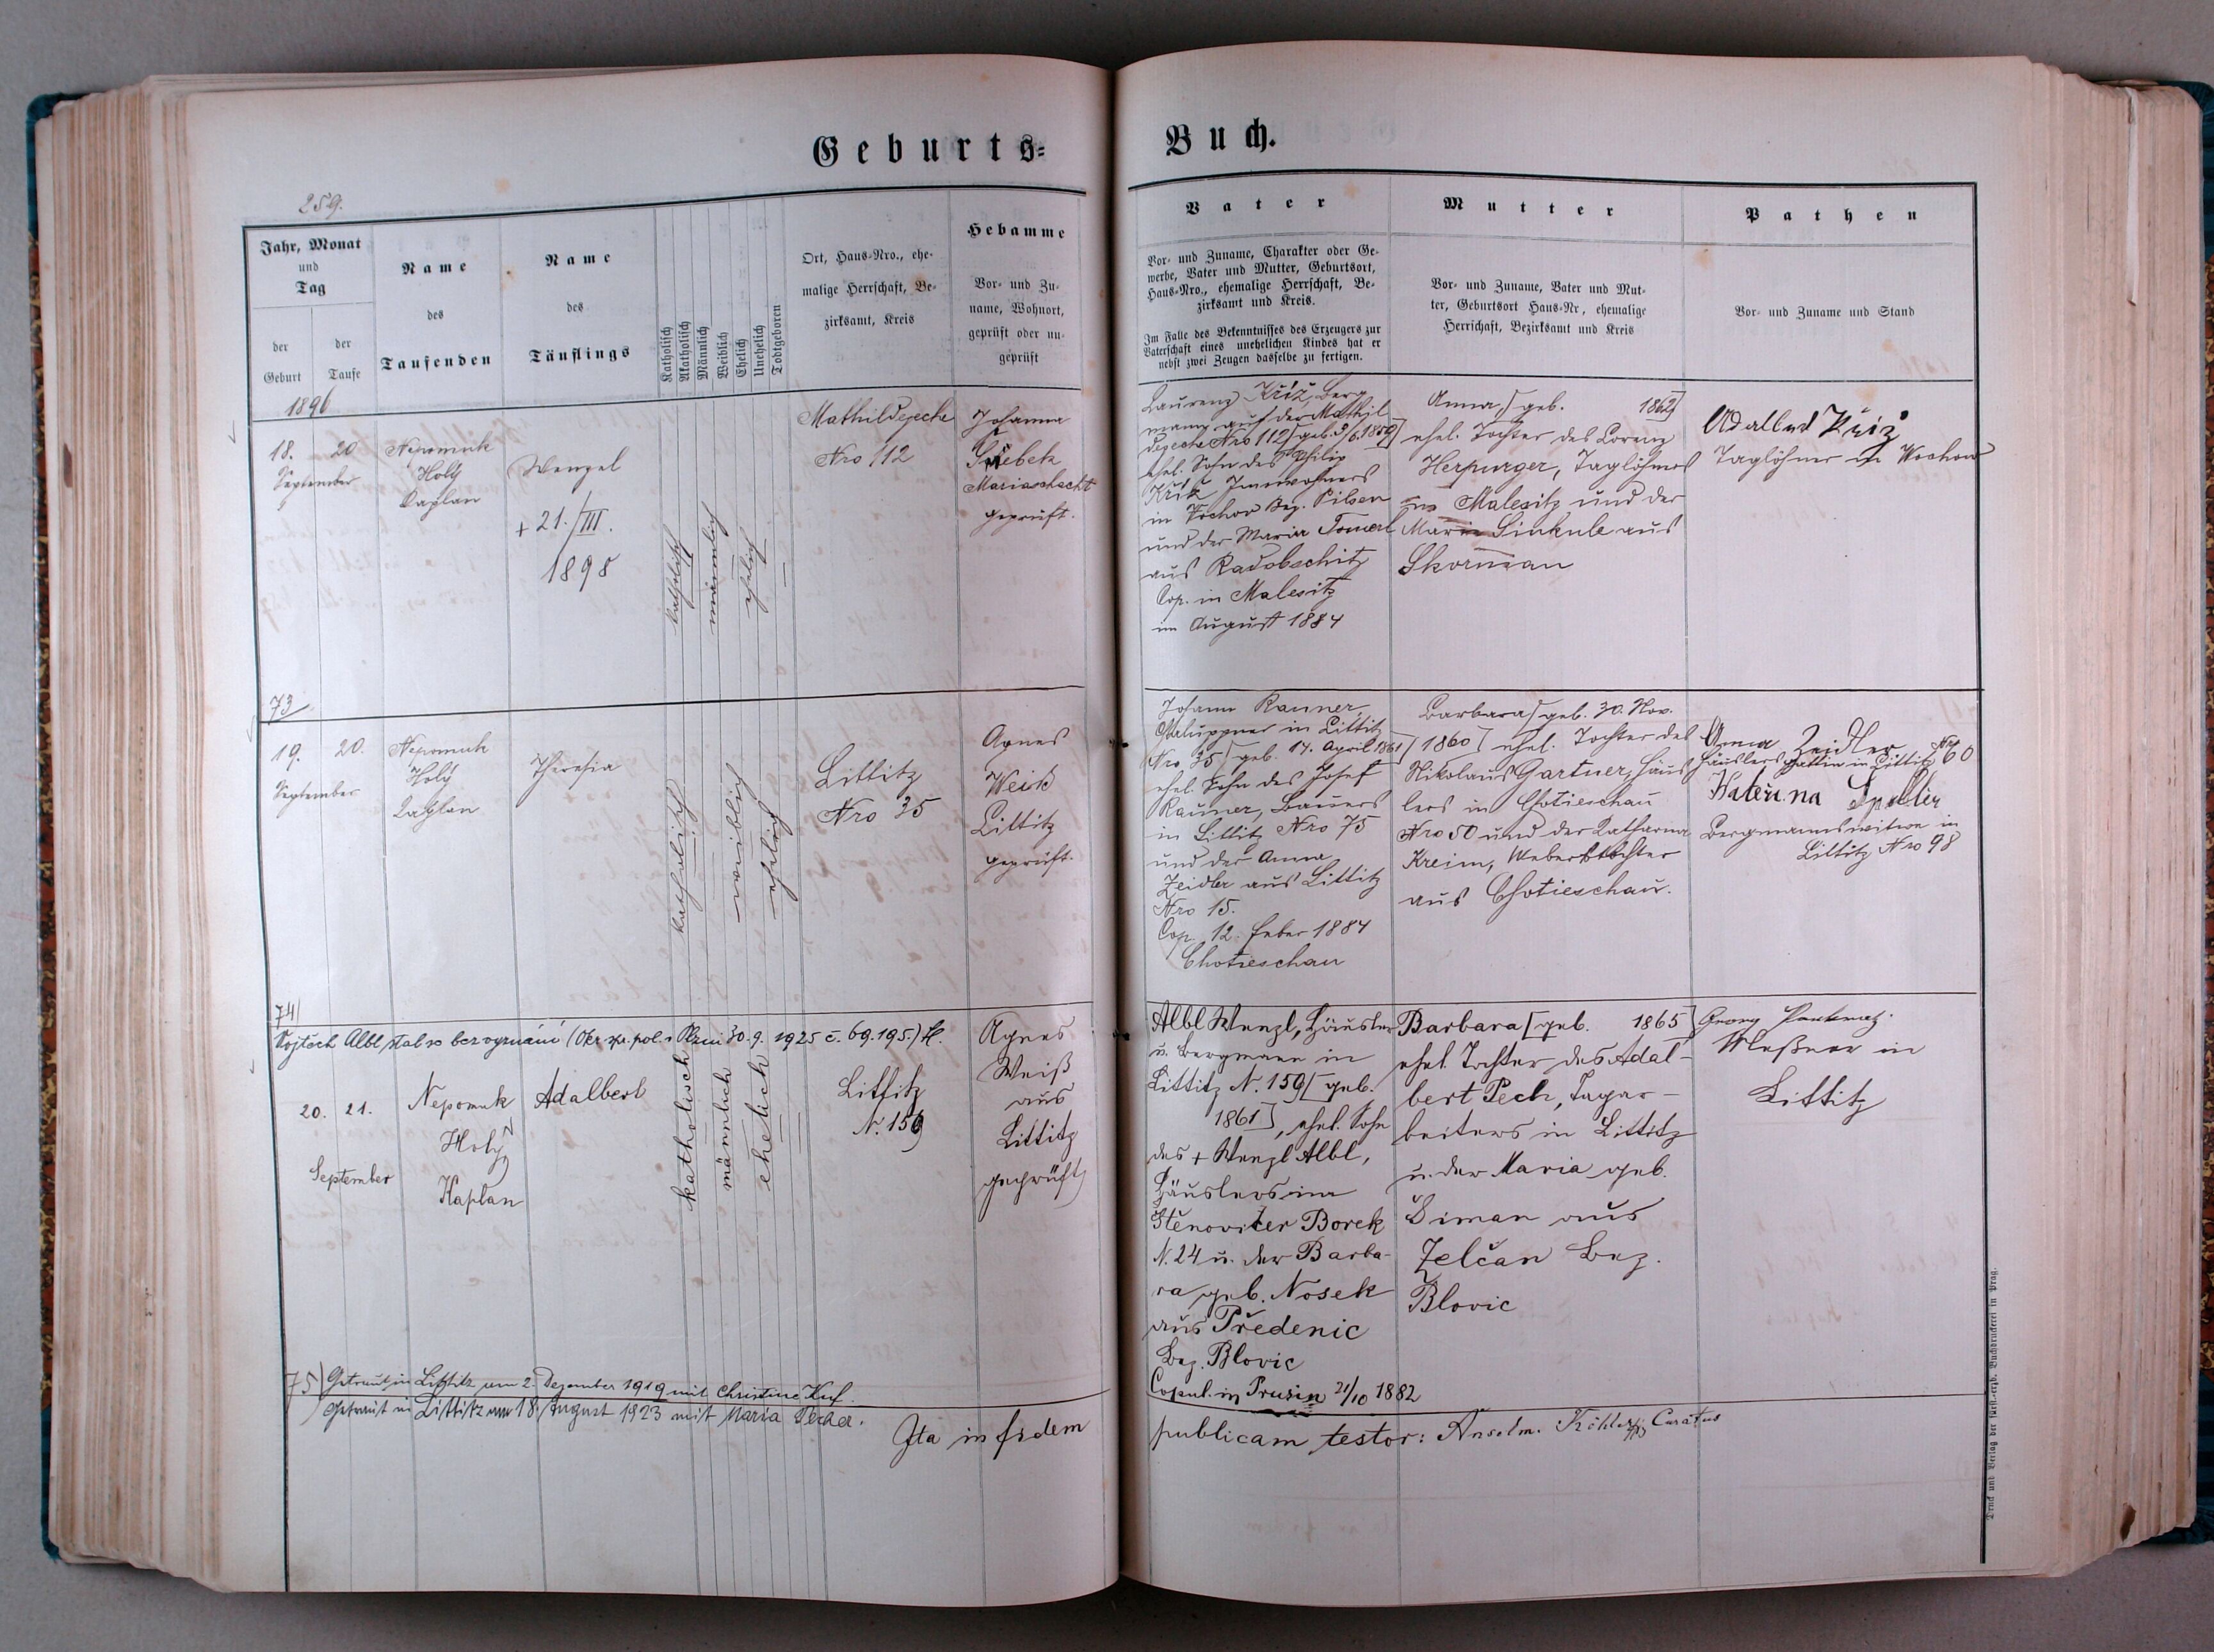 Geburts=
Buch.
259.
Jahr, Monat
und
Tag
der
Geburt
der
Taufe
Name
des
Taufenden
Name
des
Täuflings
Katholisch
Akatholisch
Männlich
Weiblich
Ehelich
Unehelich
Todtgeboren
Ort, Haus-Nro., ehe-
malige Herrschaft, Be-
zirksamt, Kreis
Hebamme
Vor- und Zu-
name, Wohnort,
geprüft oder un-
geprüft
Vater
Vor- und Zuname, Charakter oder Ge-
werbe, Vater und Mutter, Geburtsort,
Haus-Nro., ehemalige Herrschaft, Be-
zirksamt und Kreis.
Im Falle des Bekenntnisses des Erzeugers zur
Vaterschaft eines unehelichen Kindes hat er
nebst zwei Zeugen dasselbe zu fertigen.
Mutter
Vor- und Zuname, Vater und Mut-
ter, Geburtsort Haus-Nr, ehemalige
Herrschaft, Bezirksamt und Kreis
Pathen
Vor- und Zuname und Stand
1896
18.
20
September
Nepomuk
Holý
Kaplan
Wenzel
+ 21./III.
1898
katholisch
männlich
ehelich
Mathildezeche
Nro 112
Johanna
Marieschacht
geprüft.
Laurenz Kříž, Berg
mann auf der Mathil
dezeche Nro 112 [geb. 9/8.1859]
ehel. Sohn des Philip
Kříž Inwohners
in Wochow Bez. Pilsen
und der Maria Tomerl
aus Radobschitz
Cop. in Malesitz
im August 1884
Anna, [geb. 1862]
ehel. Tochter des Lorenz
Herpurger, Taglöhners
zu Malesitz und der
Maria Sinkule aus
Skornian
Adalbert Kříž
Taglöhner in Wochow
73
19.
20.
September
Nepomuk
Holý
Kaplan
Theresia
katholisch
weiblich
ehelich
Littitz
Nro 35
Agnes
Weiß
Littitz
geprüft.
Johann Rauner,
Chaluppner in Littitz
Nro 35 [geb. 17. April 1861]
ehel. Sohn des Josef
Rauner, Bauers
in Littitz Nro 75
und der Anna
Zeidler aus Littitz
Nro 15.
Cop. 12. Feber 1884
Chotieschau
Barbara [geb. 30. Nov.
1860] ehel. Tochter des
Nikolaus Gartner, Häus
lers in Chotieschau
Nro 50 und der Katharina
Kreim, Weberstochter
aus Chotieschau.
Anna Zeidler
Häuslersgattin in Littitz No 60
Bergmannswitwe in
Littitz Nro 98
74
Vojtěch Albl, stal se bez vyznání (Okr. sp. pol. v Plzni 30.9. 1925 č. 69.195.)
20.
21.
September
Nepomuk
Holý
Kaplan
Adalbert
katholisch
männlich
ehelich
Littitz
N. 159
Agnes
Weiß
aus
Littitz
geprüft
Albl Wenzl, Häusler
u. Bergmann in
Littitz N. 159 [geb.
1861], ehel. Sohn
des + Wenzl Albl,
Häuslers im
Štěnovitzer Borek
N. 24 u. der Barba-
ra geb. Nosek
aus Předenic
Bez. Blovic
Copul. in Prusin 21/10 1882
Barbara [geb. 1865]
ehel. Tochter des Adal-
bert Pech, Tagar-
beiters in Littitz
u. der Maria geb.
Šiman aus
Želčan Bez.
Blovic
Georg
Meßner in
Littitz
75 Getraut in Littitz am 2. Dezember 1919 mit Christine
Getraut in Littitz am 18. August 1923 mit Maria
Ita in fidem
publicam testor: Anselm. Köhler Curatus
Druck und Verlag der fürst-erzb. Buchdruckerei in Prag.